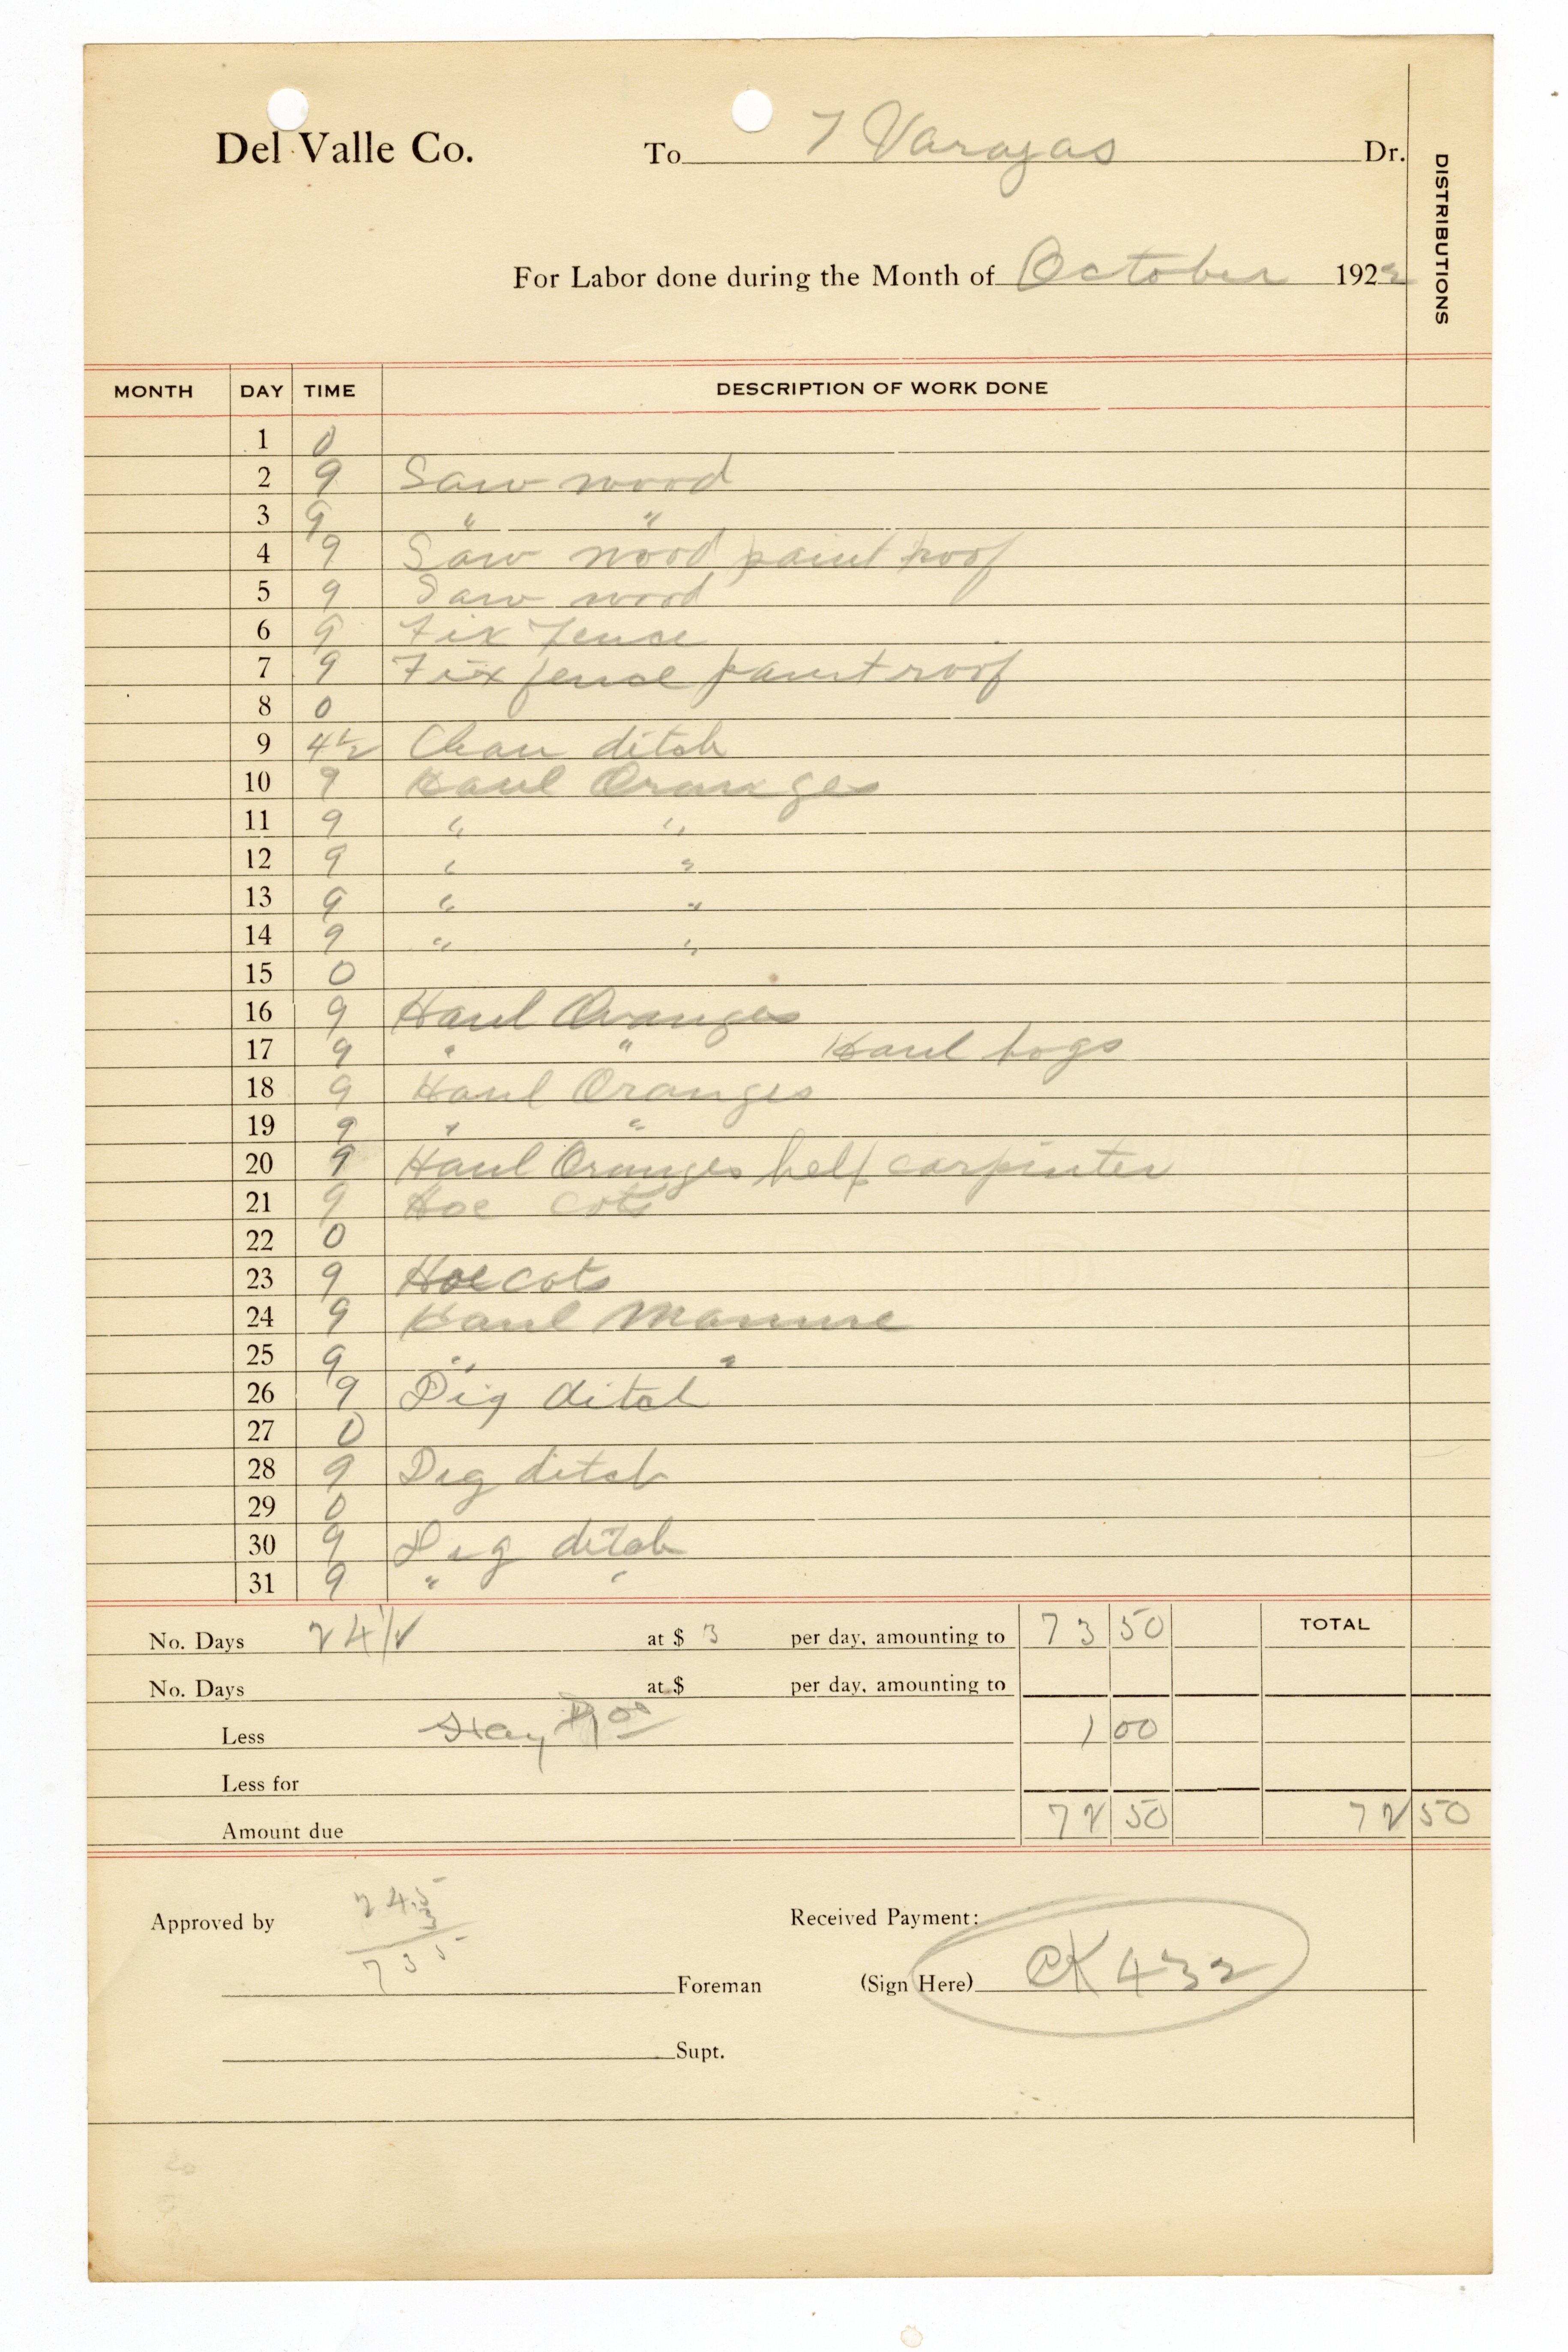 Del Valle Co. To 7 Varagas Dr.
DISTRIBUTIONS
For Labor done during the Month of October 1922
MONTH DAY TIME DESCRIPTION OF WORK DONE
1 0
2 9 Saw wood
3 9 " "
4 9 Saw wood paint roof
5 9 Saw wood
6 9 Fix fence
7 9 Fix fence paint roof
8 0
9 4 1/2 Clean ditch
10 9 Haul Oranges
11 9 " "
12 9 " "
13 9 " "
14 9 " "
15 0
16 9 Haul Oranges
17 9 " " Haul hogs
18 9 Haul Oranges
19 9 " "
20 9 Haul Oranges help carpinter
21 9 Hoe cots
22 0
23 9 Hoe cots
24 9 Haul Manure
25 9 " "
26 9 Dig ditch
27 0
28 9 Dig ditch
29 0
30 9 Dig ditch
31 9 " "
No. Days 24 1/2 at $ 3 per day, amounting to 73 50 TOTAL
No. Days at $ per day, amounting to
Less Hay 1 00
Less for
Amount due 72 50 72 50
24.5
3
735
Approved by Received Payment:
Foreman (Sign Here) CK 432
Supt.